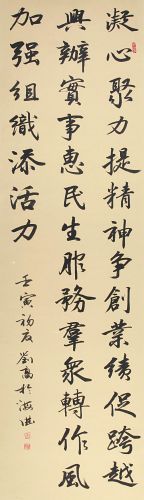 凝心聚力提精神争創業績促跨越
興辦實事惠民生服務羣衆轉作風
加强組織添活力
壬寅初劉於海